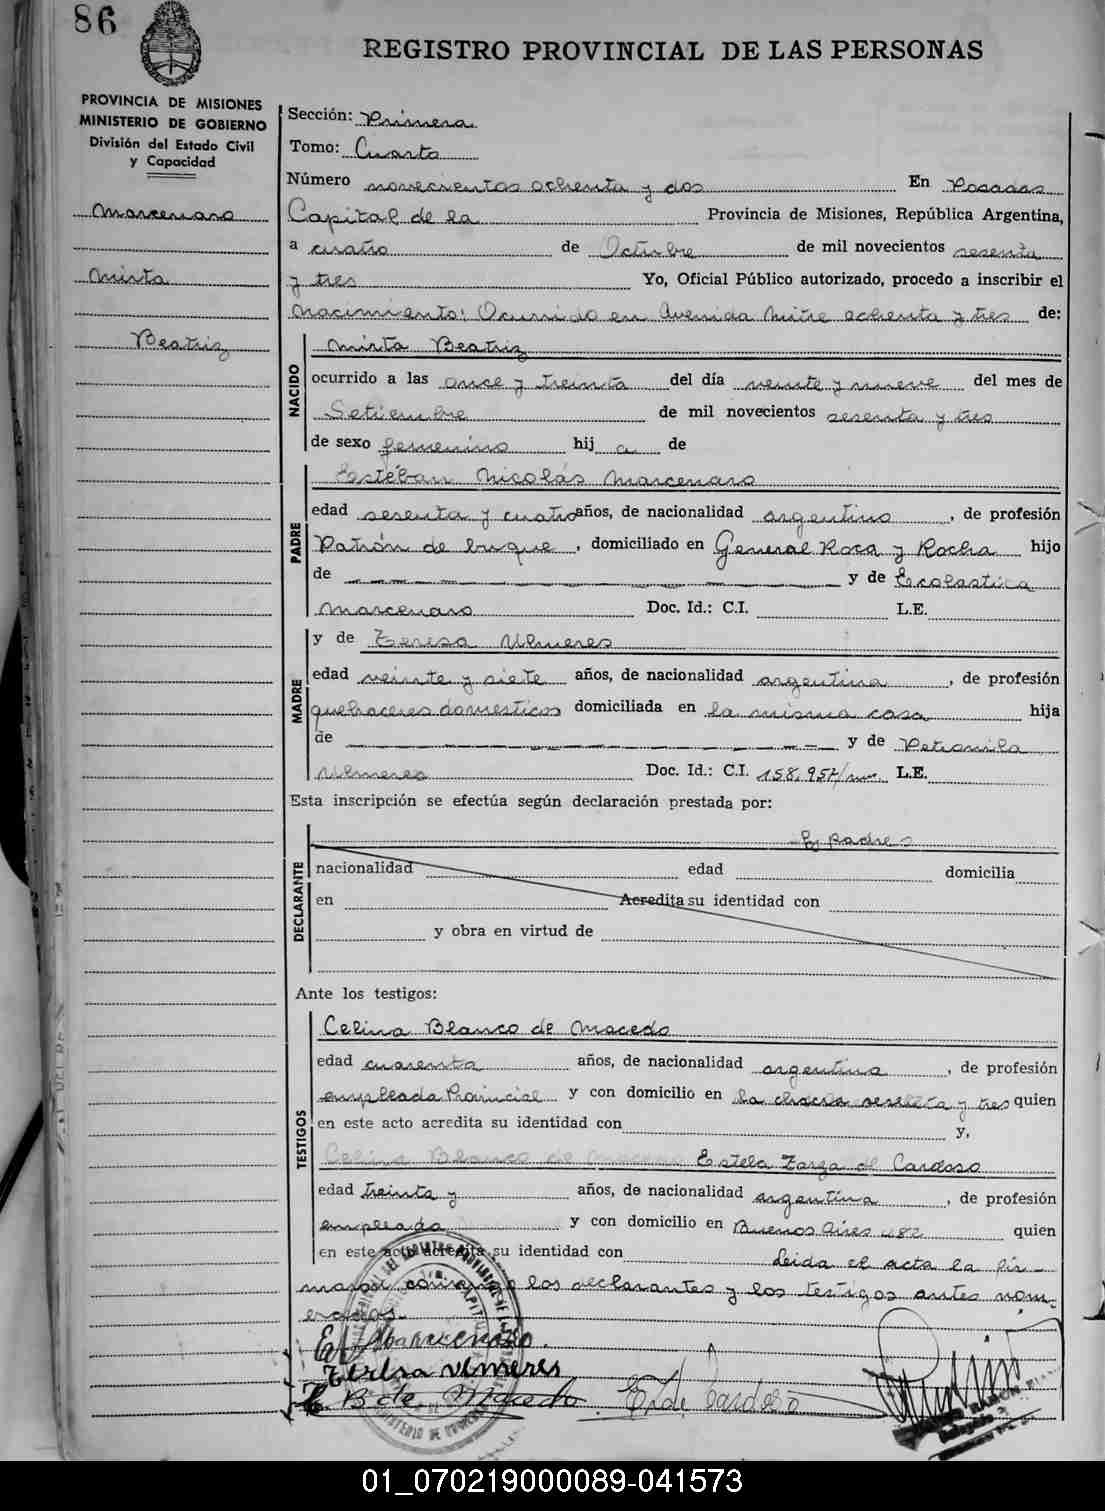 86
REGISTRO PROVINCIAL DE LAS PERSONAS
PROVINCIA DE MISIONES
MINISTERIO DE GOBIERNO
División del Estado Civil
y Capacidad
Marcenaro
Mirta
Beatriz
Sección: Primera
Tomo: Cuarto
Número novecientos ochenta y dos En Posadas
Capital de la Provincia de Misiones, República Argentina,
a cuatro de Octubre de mil novecientos sesenta
y tres Yo, Oficial Público autorizado, procedo a inscribir el
nacimiento: Ocurrido en Avenida Mitre ochenta y tres de:
NACIDO
Mirta Beatriz
ocurrido a las once y treinta del día veinte y nueve del mes de
Setiembre de mil novecientos sesenta y tres
de sexo femenino hij a de
Estéban Nicolás Marcenaro
PADRE
edad sesenta y cuatro años, de nacionalidad argentino, de profesión
Patrón de buque, domiciliado en General Roca y Rocha hijo
de y de Escolastica
Marcenaro Doc. Id.: C.I. L.E.
y de Teresa Ulmeres
MADRE
edad veinte y siete años, de nacionalidad argentina, de profesión
quehaceres domesticos domiciliada en la misma casa hija
de y de Petronila
Ulmeres Doc. Id.: C.I. 158.957 L.E.
Esta inscripción se efectúa según declaración prestada por:
padres
DECLARANTE
nacionalidad edad domicilia
en Acredita su identidad con
y obra en virtud de
Ante los testigos:
TESTIGOS
Celina Blanco de Macedo
edad cuarenta años, de nacionalidad argentina, de profesión
empleada Provincial y con domicilio en la chacra sesenta y tres quien
en este acto acredita su identidad con y,
Celina Blanco de Macedo Estela Zarza de Cardoso
edad treinta y años, de nacionalidad argentina, de profesión
empleada y con domicilio en Buenos Aires quien
en este acto acredita su identidad con Leida el acta la fir-
man los declarantes y los testigos antes nom-
brados.
E. Marcenaro.
Teresa Ulmeres
C. B de Macedo E. Z de Cardoso
01_070219000089-041573